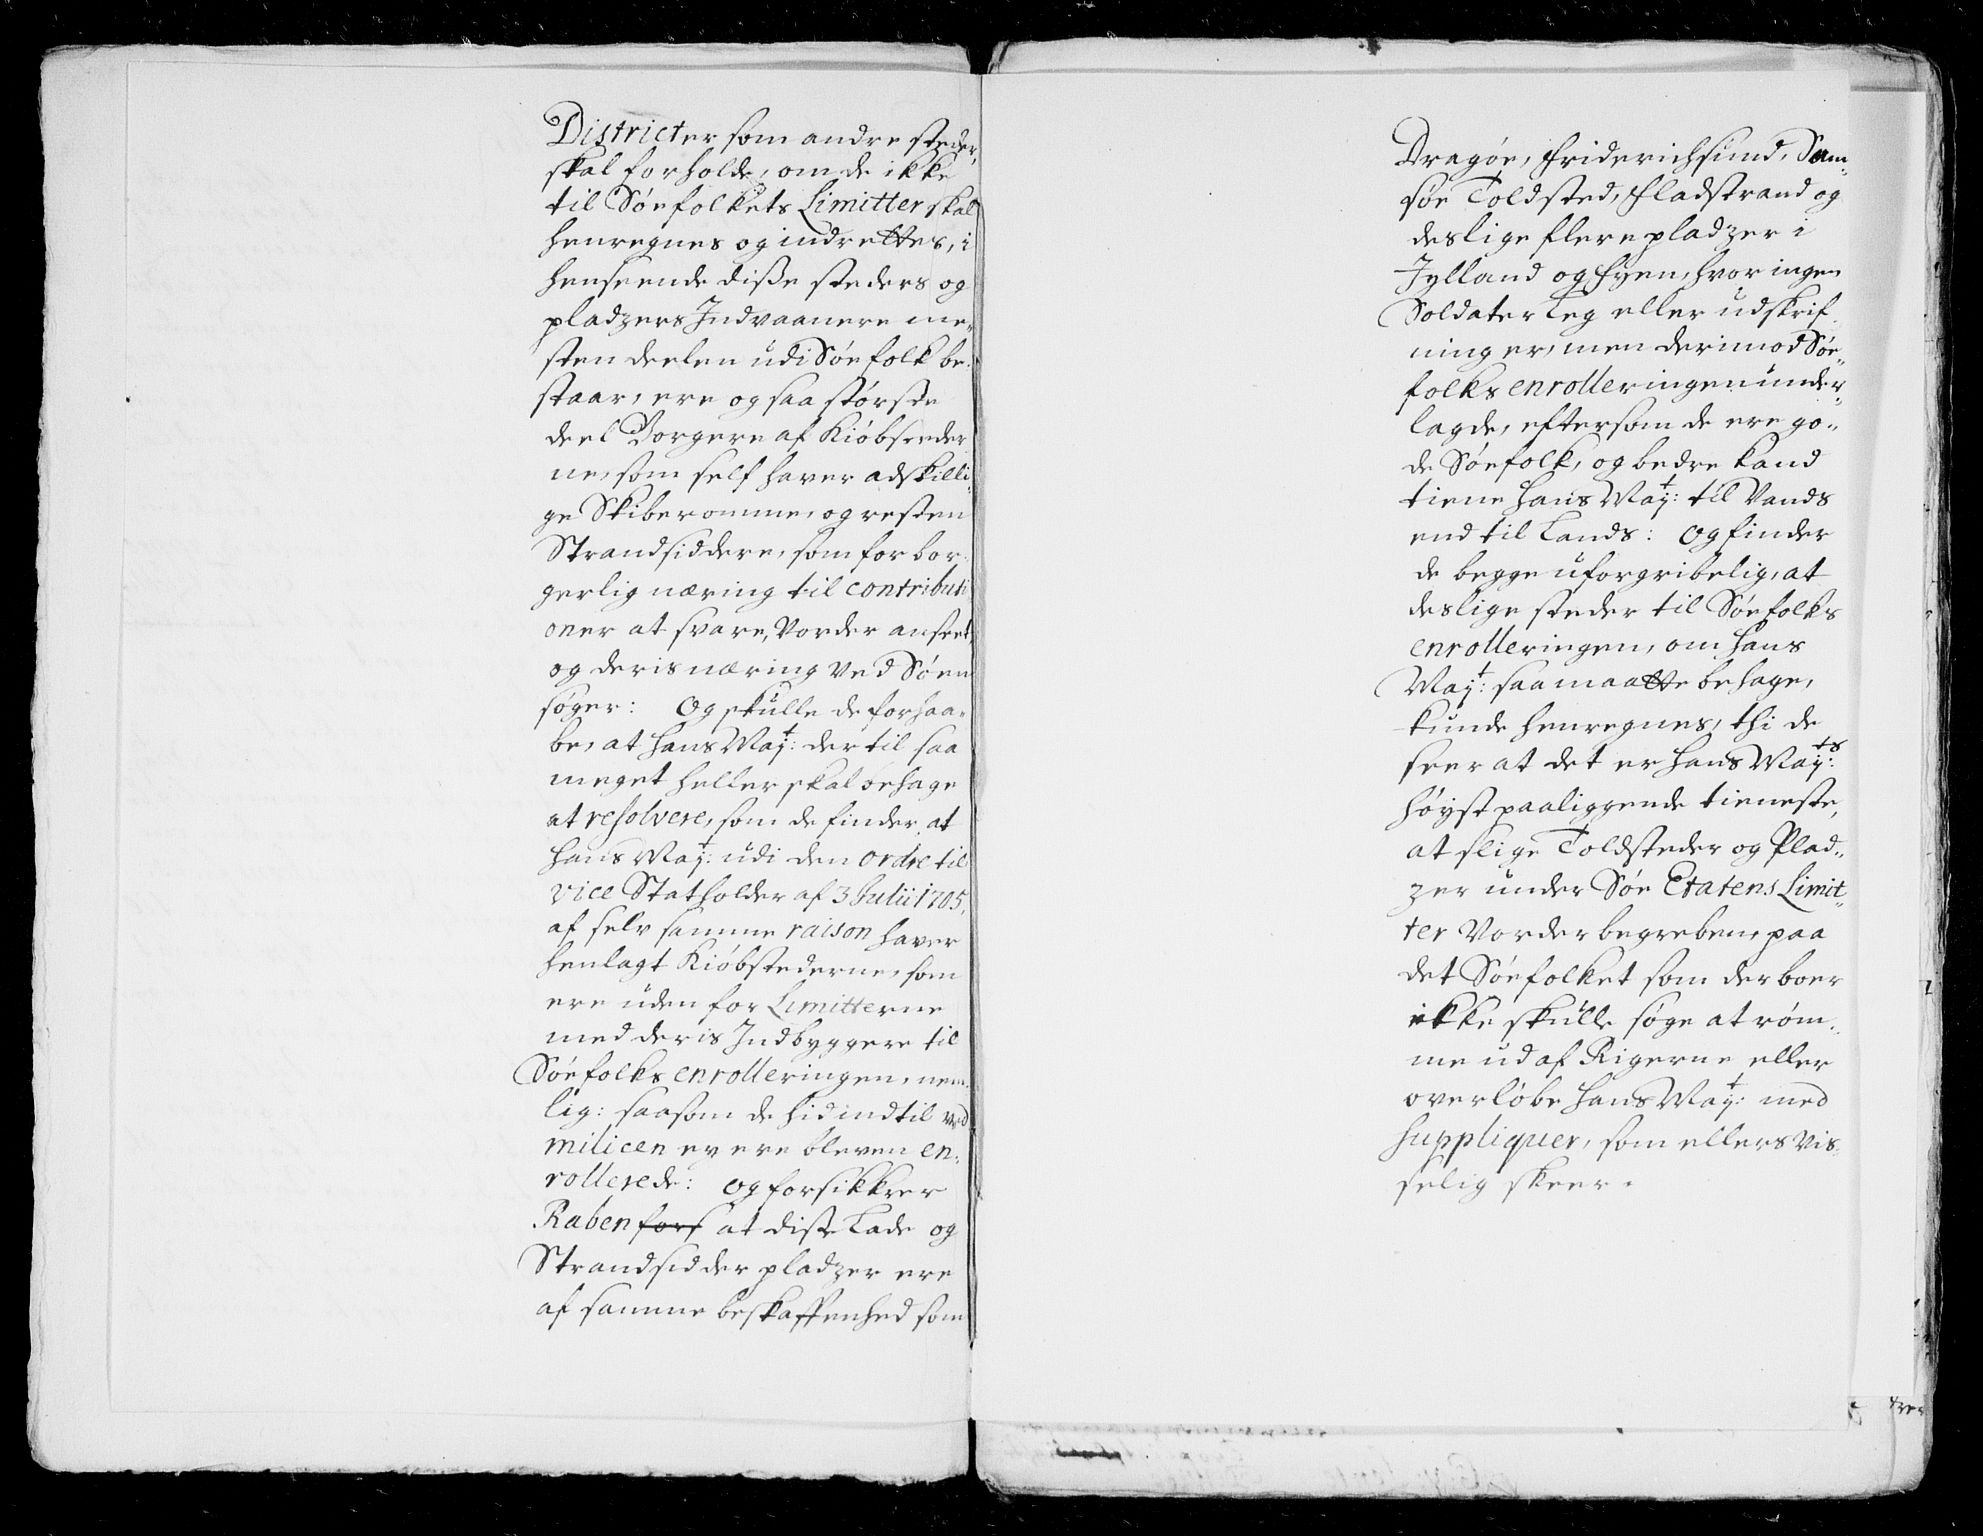 Districter som andre steder,
skal forholde, om de ikke
til Søefolkets Limitter skal
henregnes og indrettes, i
henseende diße steders og
pladzers Indvaanere me-
sten deelen udi Søefolk be-
staar, ere og saa største
deel Borgere af Kiøbsteder
ne, som self haver adskilli-
ge Skiberomme, og resten
Strandsiddere, som for bor-
gerlig næring til contributi
oner at svare, Vorder anseet,
og deris næring Ved Søen
søger: Og skulle de forhaa-
be, at hans Maj:t der til saa
meget heller skal behage
at resolvere, som de finder at
hans Maj:t udi den ordre til
vice Statholder af 3 Julii 1705,
af selv samme raison haver
henlagt Kiøbstederne, som
ere uden for Limitterne
med deris Indbyggere til
Søefolks enrolleringen, nem-
lig: saasom de hid indtil ved
milicen ey ere bleven en-
rollerede: og forsikkrer
Raben fors at diße Lade og
Strandsidder pladzer ere
af samme beskaffenhed som
Dragøe, Friderichsund, Sam-
søe Toldsted, Fladstrand og
deslige flere pladzer i
Jylland og Fyen, hvor ingen
Soldater Leg eller udskrif-
ning er, men derimod Søe-
folks enrolleringen under-
lagde, eftersom de ere go-
de Søefolk, og bedre kand
tiene hans Maj:t til Vands
end til Lands: Og finder
de begge uforgribelig, at
deslige steder til Søefolks
enrolleringen, om hans
Maj:t saa maatte behage,
kunde henregnes, thi de
seer at det er hans Maj:ts
høyst paaliggende tieneste,
at slige Toldsteder og Plad-
zer under Søe Etatens Limit-
ter Vorder begreben, paa
det Søefolket som der boer
ikke skulle søge at røm-
me ud af Rigerne eller
overløbe hans Maj:t med
suppliquer, som ellers vis-
selig skeer.